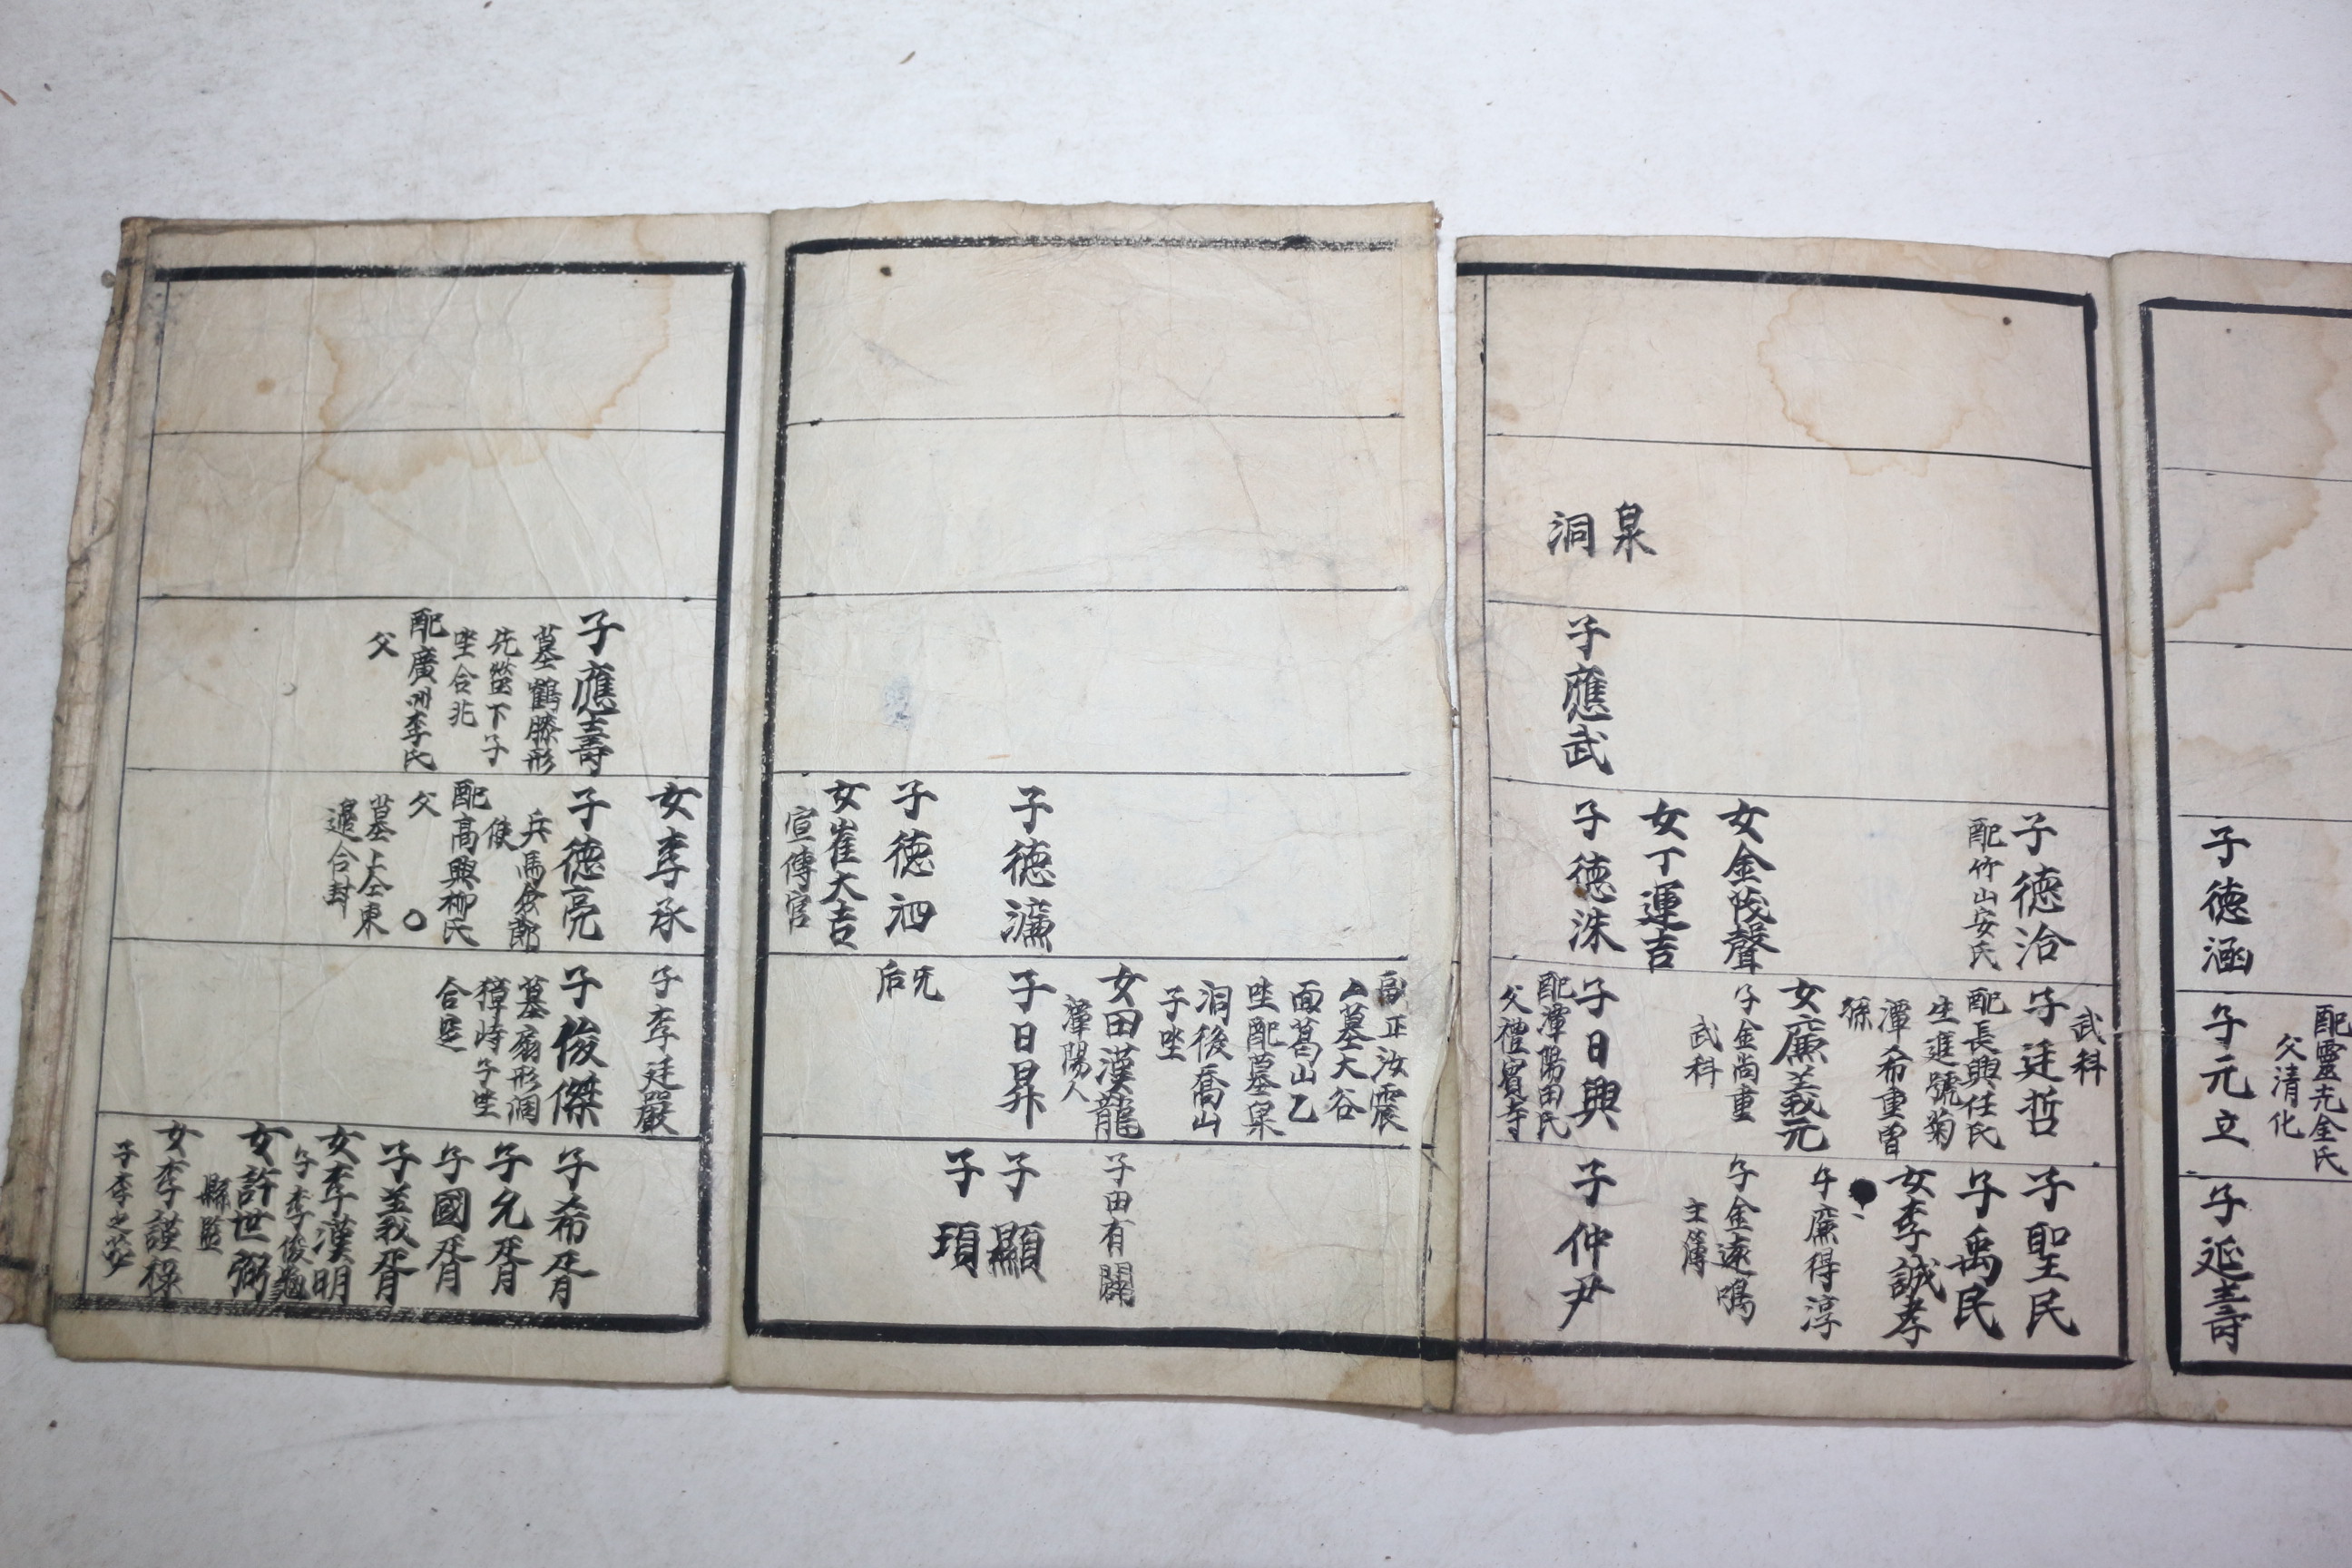 子德涵
配靈光金氏
父清化
子元立
子延壽
泉
洞
子應武
子德治
配竹山安氏
女金陖聲
女丁運吉
子德洙
武科
子廷哲
配長興任氏
生進號菊
潭希重曾
孫
女廉義元
子金尚重
武科
子日興
配潭陽田氏
父禮賓寺
子聖民
子禹民
女李誠孝
子廉得淳
子金遠鳴
主簿
子仲尹
子德濂
子德泗
女崔大吉
宣傳官
副正汝震
墓大谷
面葛山乙
坐配墓泉
洞後喬山
子坐
女田漢龍
潭陽人
子日昇
无
后
子田有闢
子顯
子頊
子應壽
墓鶴膝形
先塋下子
坐合兆
配廣州李氏
父
女李承
子德亮
兵馬僉節
使
配高興柳氏
父
墓上仝東
邊合封
子李廷嚴
子俊傑
墓扇形洞
獐峙子坐
合窆
子希胥
子允胥
子國胥
子義胥
女李漢明
子李俊
女許世弼
縣監
女李謹祿
子李之